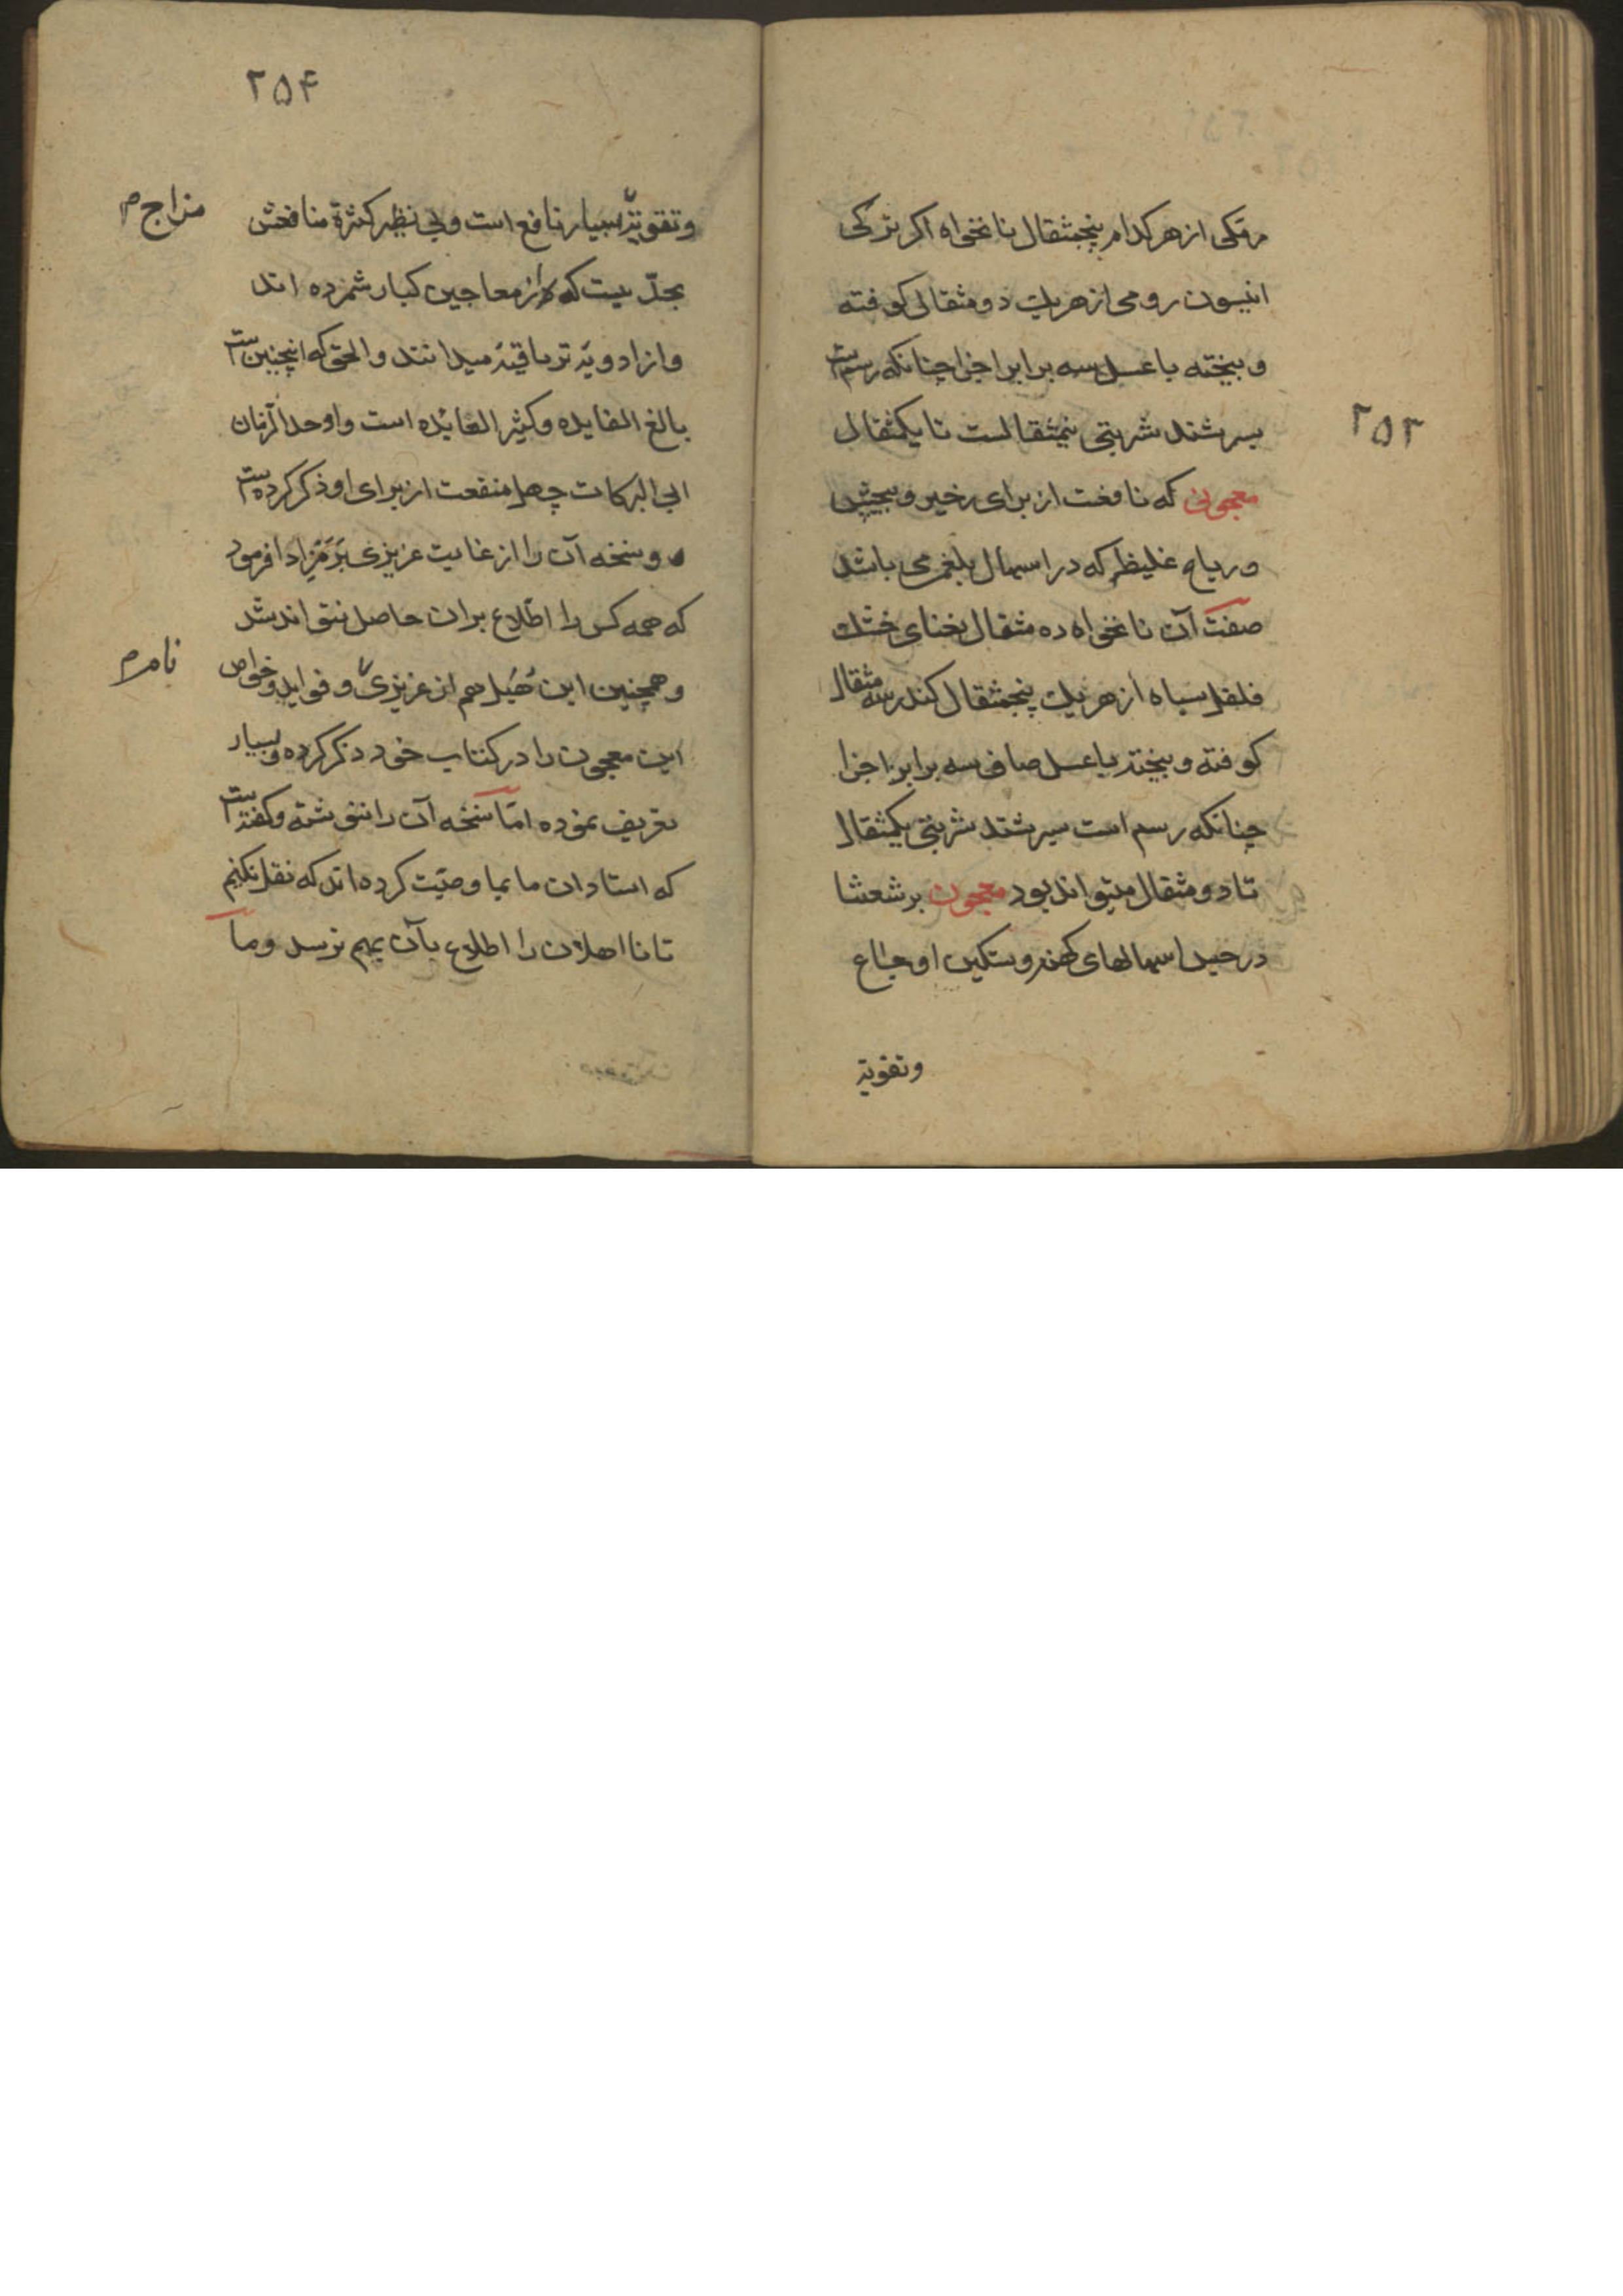 ۲۵۳
مکی از هر کدام پنجمثقال نانخواه اکر ترکی
انیسون رومی از هر یک دو مثقال کوفته
و بیخته با عسل سه برابر اجزا چنانکه رسمست
بسرشند شربتی نیمثقالست تا یکمثقال
معجون که نافعست از برای زخیر و پیچش
و ریاح غلیظ که در اسهال بلغمی باشد
صفت آن نانخواه ده مثقال نعنای خشک
فلفل سیاه از هر یک پنجمثقال کندر سه مثقال
کوفته و بیخته با عسل صافی سه برابر اجزا
چنانکه رسم است سیرشند شربتی یکمثقال
تا دو مثقال میتواند بود معجون برشعشا
در حبس اسهالهای کهنه و تسکین اوجاع
وتقویة
۲۵۴
وتقویة بسیار نافع است و بی نظیر کثرة منافعش
مزاج م
بحدّیست که از معاجین کبار شمرده اند
و از ادویهٔ تریاقیهٔ میدانند والحق که اینچنین است
بالغ الفایده و کثیر الفایده است و اوحد الزمان
ابی البرکات چهل منفعت از برای او ذکر کرده است
و نسخه آن را از غایت عزیزی برمز ادا فرمود
که همه کس را اطّلاع بران حاصل نتواند شد
و همچنین ابن هُبَل هم از عزیزی و فواید و خواص
نامرم
این معجون را در کتاب خود ذکر کرده و بسیار
تعریف نموده امّا نسخه آن را ننوشته و کفته است
که استادان ما بما وصیّت کرده اند که نقل نکنیم
تا نا اهلان را اطلاع بآن بهم نرسد و ما